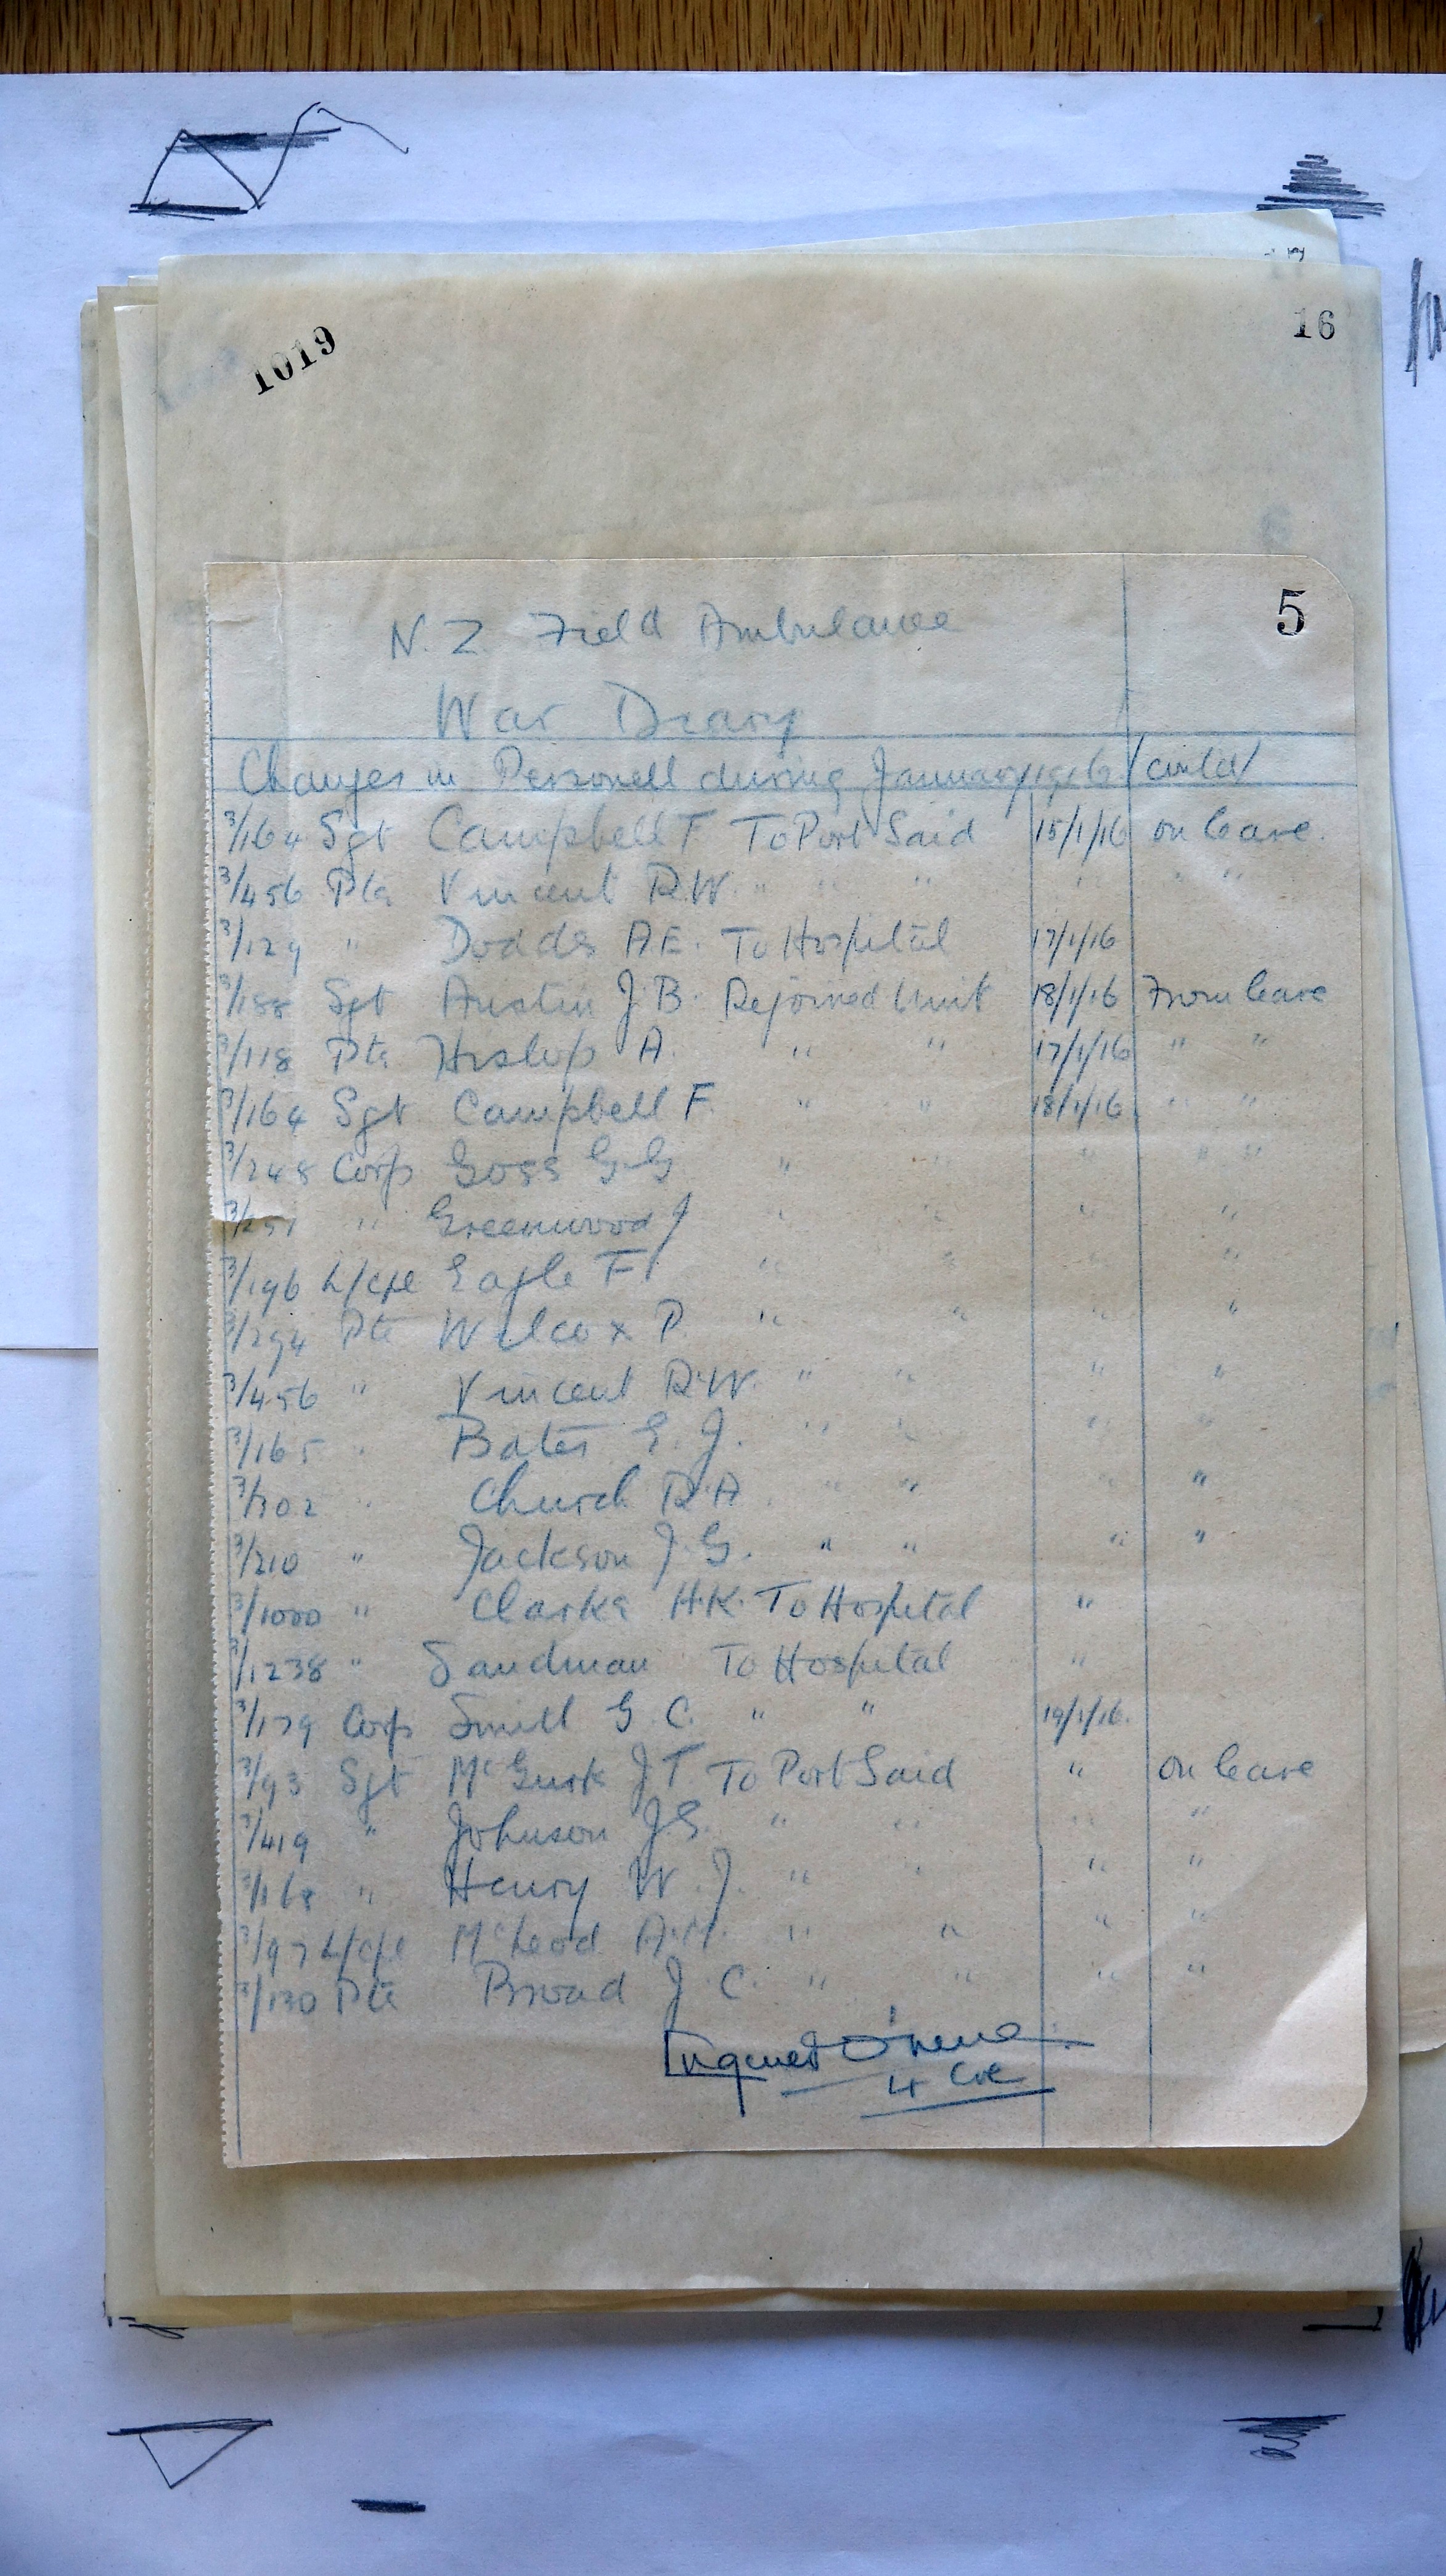 1019
16
5
N.Z. Field Ambulance
War Diary
Changes in Personell during January 1916 /contd/
3/164 Sgt Campbell F To Port Said 15/1/16 on leave.
3/456 Pte Vincent R.W. " " " " " "
3/129 " Dodds A.E. To Hospital 17/1/16
3/188 Sgt Austin J.B. Rejoined Unit 18/1/16 From leave
3/118 Pte Hislop A. " " 17/1/16 " "
3/164 Sgt Campbell F. " " 18/1/16 " "
3/248 Corp Goss G.G " " " " "
3/251 " Greenwood J " " " "
3/196 L/cpl Eagle F. " " " "
3/294 Pte Wilcox P. " " " "
3/456 " Vincent R.W. " " " "
3/165 " Bates E.J. " " " "
3/302 " Church R.A. " " " "
3/210 " Jackson J.G. " " " "
3/1000 " Clarke H.K. To Hospital "
3/1238 " Sandman To Hospital "
3/179 Corp Smith G.C. " " 19/1/16.
3/93 Sgt McGurk J.T. To Port Said " on leave
3/419 " Johnson J.G. " " " "
3/168 " Henry W.J. " " " "
3/97 L/cpl McLeod A.H. " " " "
3/130 Pte Broad J.C. " " " "
Lt Col